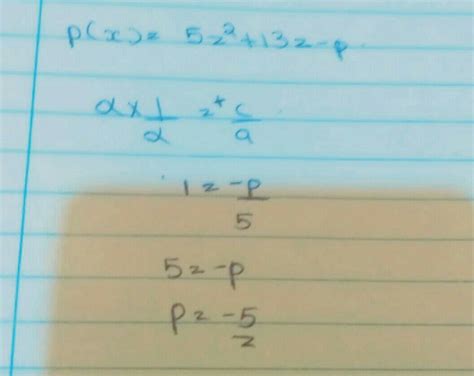 p(x) = 5z²+13z-p.
α × 1/α = + c/a
1 = -p/5
5 = -p
p = -5
=